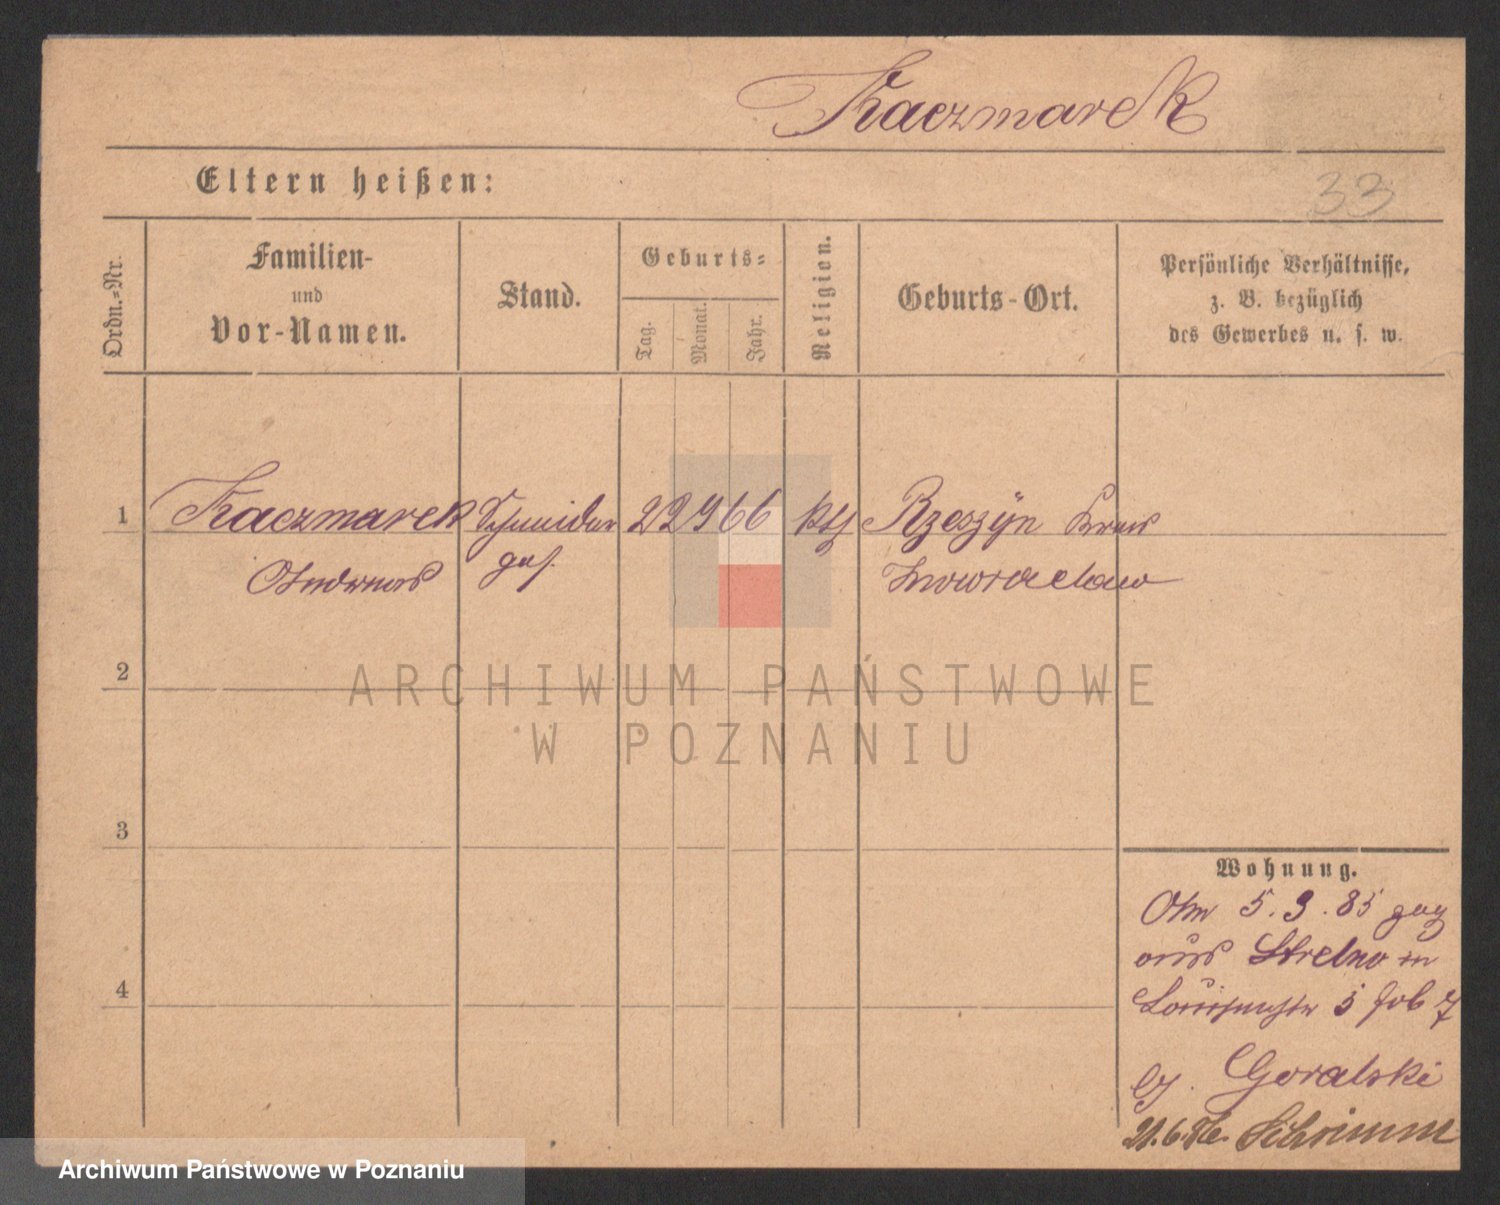 Kaczmarek
Eltern heißen:
33
Ordn.-Nr.
Familien-
und
Vor-Namen.
Stand.
Geburts-
Tag.
Monat.
Jahr.
Religion.
Geburts-Ort.
Persönliche Verhältnisse,
z. B. bezüglich
des Gewerbes u. s. w.
1 Kaczmarek Schneider 22 9 66 kth Rzeszyn Kreis
Andreas ges. Inowraclaw
2
ARCHIWUM PAŃSTWOWE
W POZNANIU
3
Wohnung.
Am 5.9.85 zug
aus Strelno in
Louisenstr 5
4
b/. Goralski
21.6.86. Schrimm
Archiwum Państwowe w Poznaniu